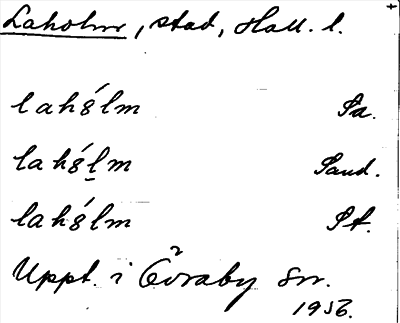 Laholm, stad, Hall. l.
lahǿlm Pa.
lahǿl̠m Sand.
lahǿlm St.
Uppt. i Övraby sn.
1956.